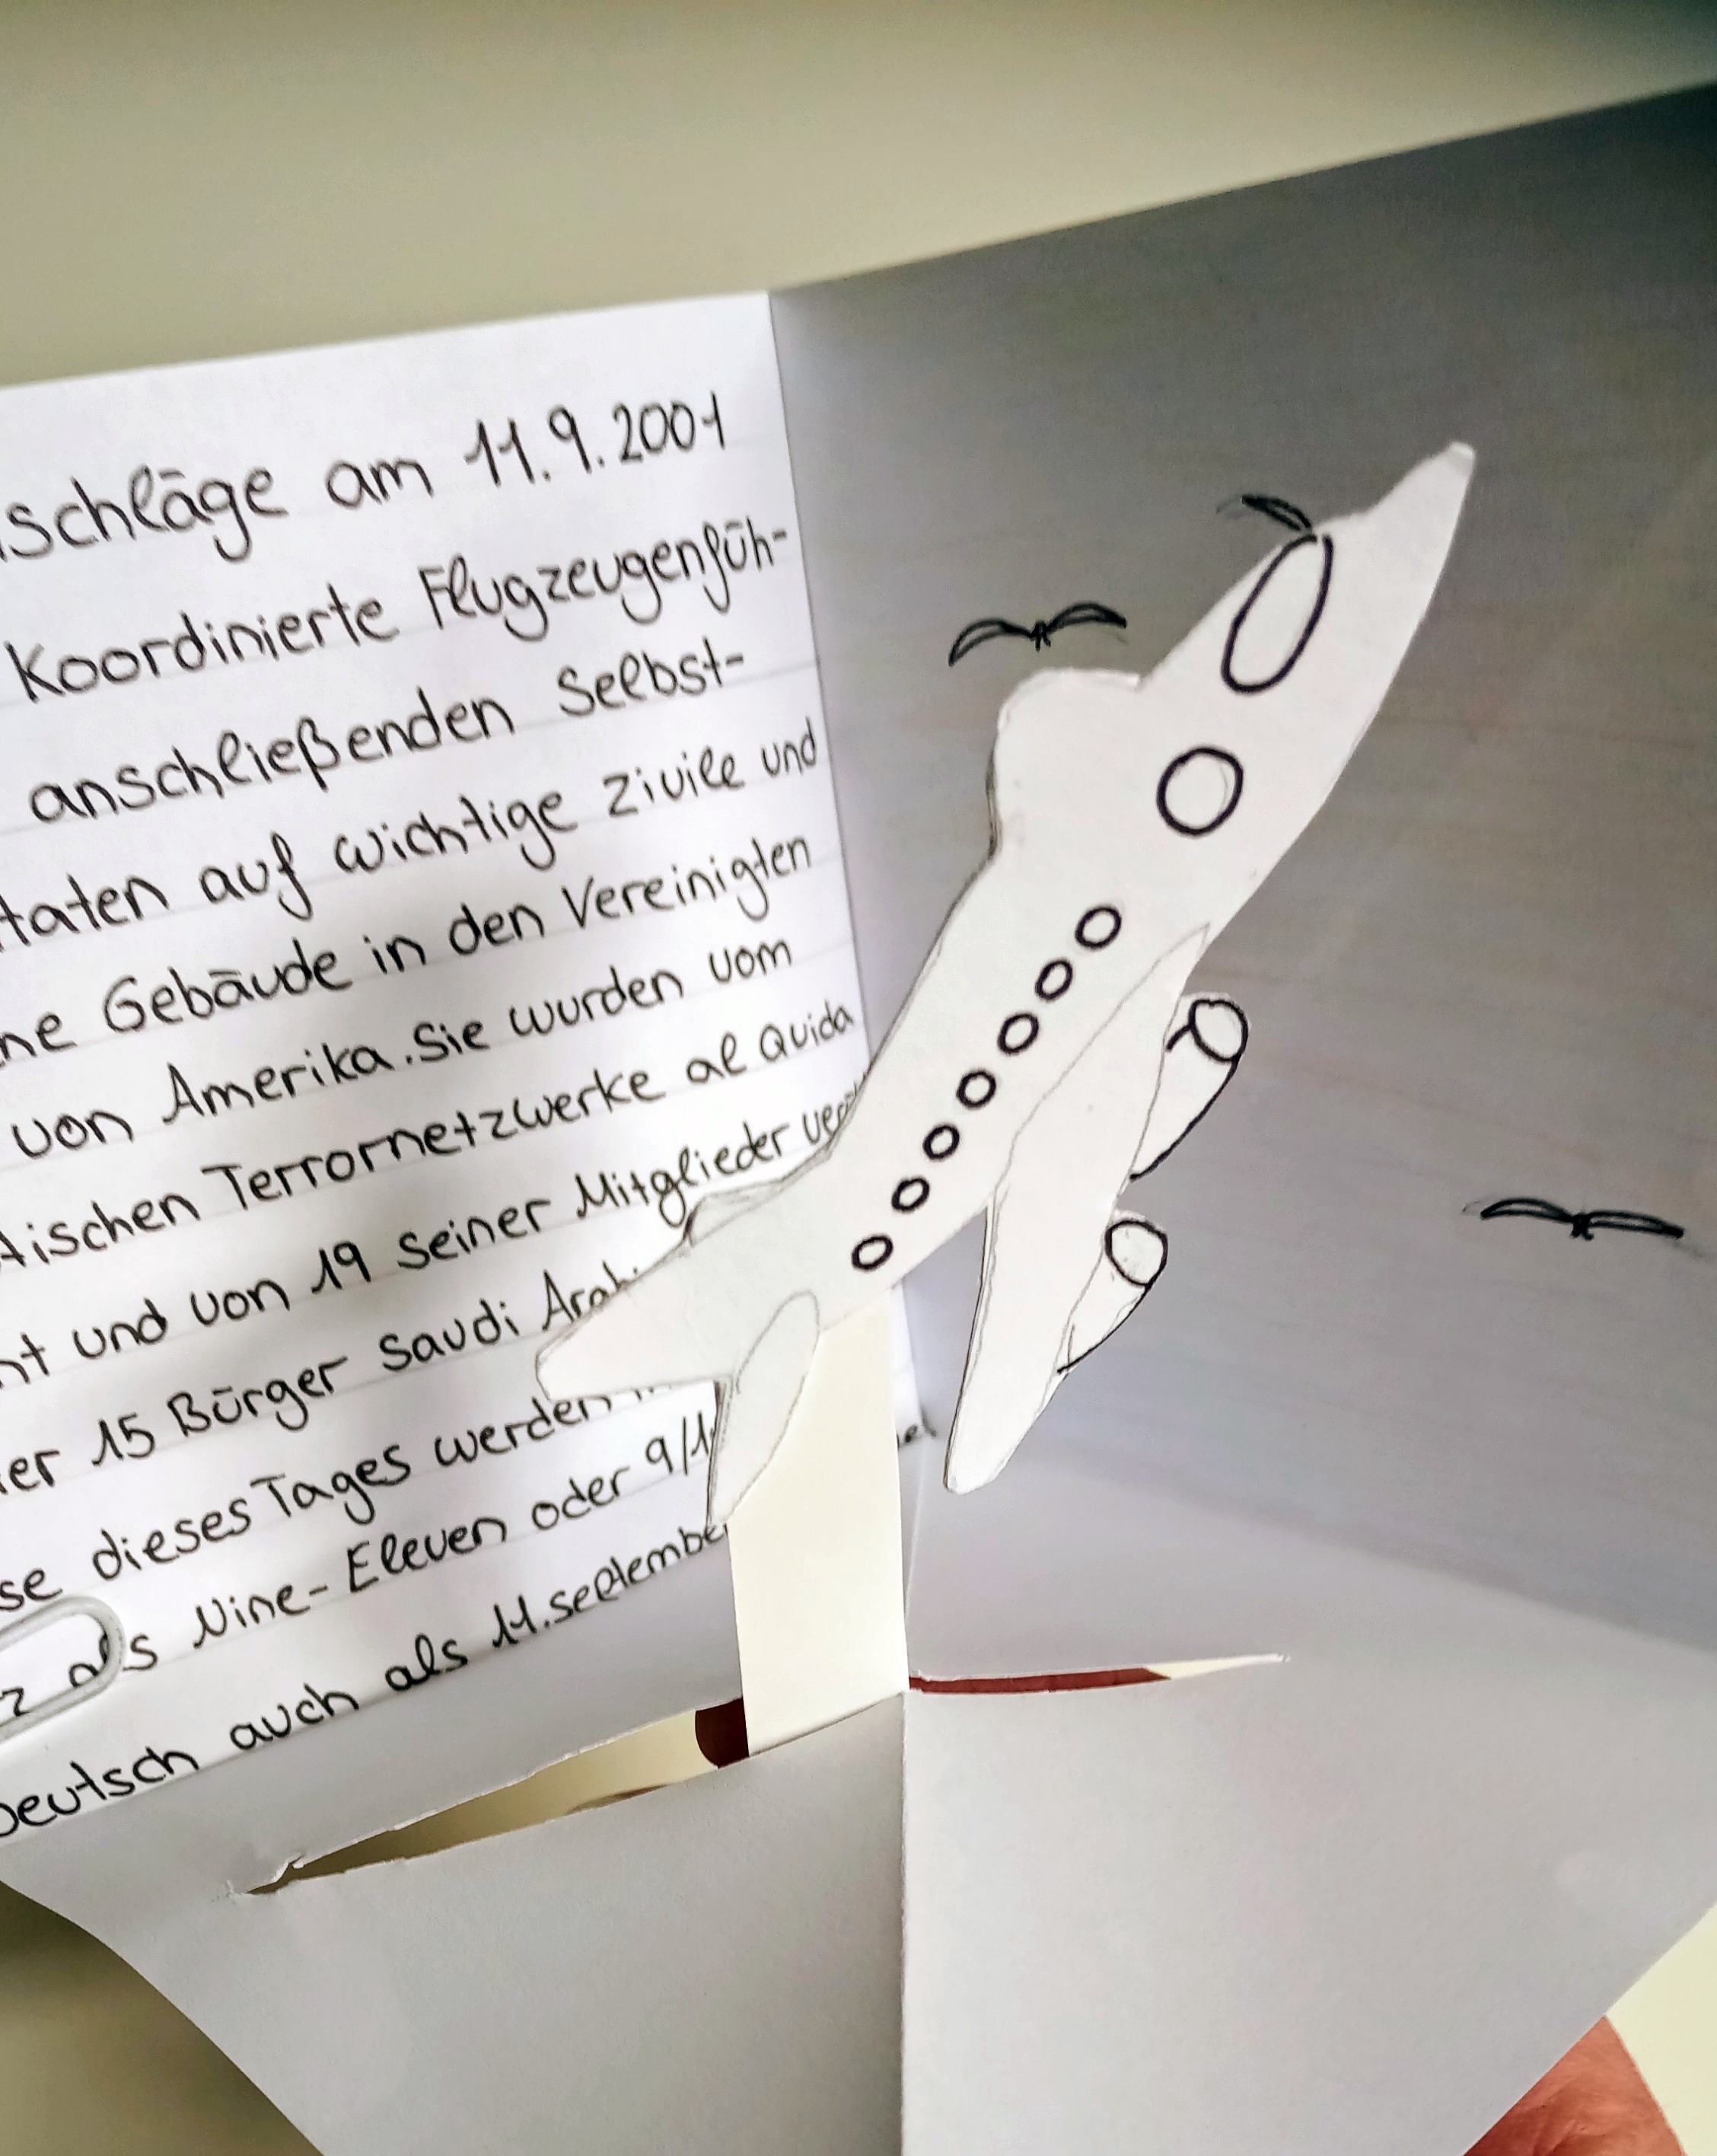 schläge am 11.9.2001
Koordinierte Flugzeugenfüh-
anschließenden Selbst-
taten auf wichtige zivile und
ne Gebäude in den Vereinigten
von Amerika. Sie wurden vom
tischen Terrornetzwerke al Quida
nt und von 19 seiner Mitglieder ver
er 15 Bürger Saudi Arabi
se dieses Tages werden
z als Nine-Eleven oder 9/1
Deutsch auch als 11. September